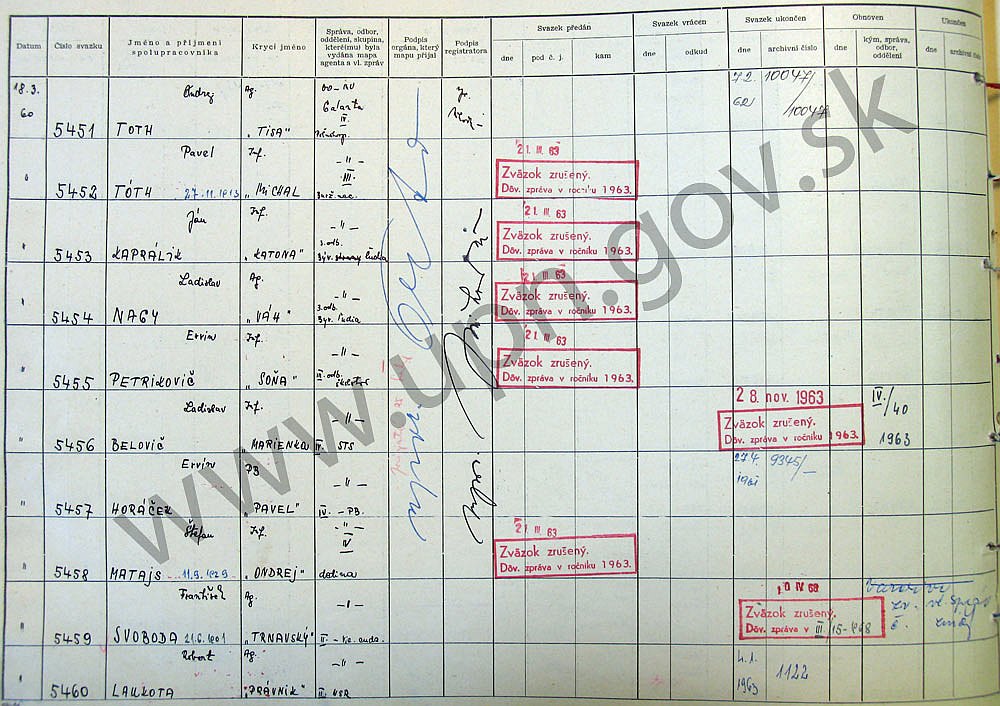 Datum
Číslo svazku
Jméno a příjmení
spolupracovníka
Krycí jméno
Správa, odbor,
oddělení, skupina,
kterému) byla
vydána mapa
agenta a vl. zpráv
Podpis
orgána, který
mapu přijal
Podpis
registratora
Svazek předán
dne
pod č. j.
kam
Svazek vrácen
dne
odkud
Svazek ukončen
dne
archivní číslo
Obnoven
dne
kým, správa,
odbor,
oddělení
Ukončen
dne
archivní číslo
18. 3.
60
5451
Ondrej
TOTH
Ag.
"TISA"
Galanta
II.
7.2.
10047/
10047
5452
Pavel
TÓTH 27.11.1913
Inf.
"MICHAL
-"-
III.
21. III. 63
Zväzok zrušený.
Dôv. zpráva v ročníku 1963.
5453
Ján
KAPRÁLIK
Inf.
"KATONA"
-"-
3. odb.
21. III. 63
Zväzok zrušený.
Dôv. zpráva v ročníku 1963.
5454
Ladislav
NAGY
Ag.
"VÁH"
-"-
3. odb.
21. III. 63
Zväzok zrušený.
Dôv. zpráva v ročníku 1963.
5455
Ervin
PETRIKOVIČ
Inf.
"SOŇA"
-"-
III. odb.
21. III. 63
Zväzok zrušený.
Dôv. zpráva v ročníku 1963.
" 5456
Ladislav
BELOVIČ
Inf.
"MARIENKA"
-"-
II. STS
28. nov. 1963
Zväzok zrušený.
Dôv. zpráva v ročníku 1963.
IV./40
1963
" 5457
Ervín
HORÁČEK
PB
"PAVEL"
-"-
IV. - PB.
27.4.
1961
9345/-
" 5458
Štefan
MATAJS 11.9.1929
Inf.
"ONDREJ"
-"-
IV
dedina
21. III 63
Zväzok zrušený.
Dôv. zpráva v ročníku 1963.
" 5459
František
SVOBODA 21.6.1901
Ag.
"TRNAVSKÝ"
-"-
10 IV 68
Zväzok zrušený.
Dôv. zpráva v III/15-68
5460
Robert
LAUKOTA
Ag.
"PRÁVNIK"
-"-
II. VSR
4.1.
1963
1122
www.upn.gov.sk